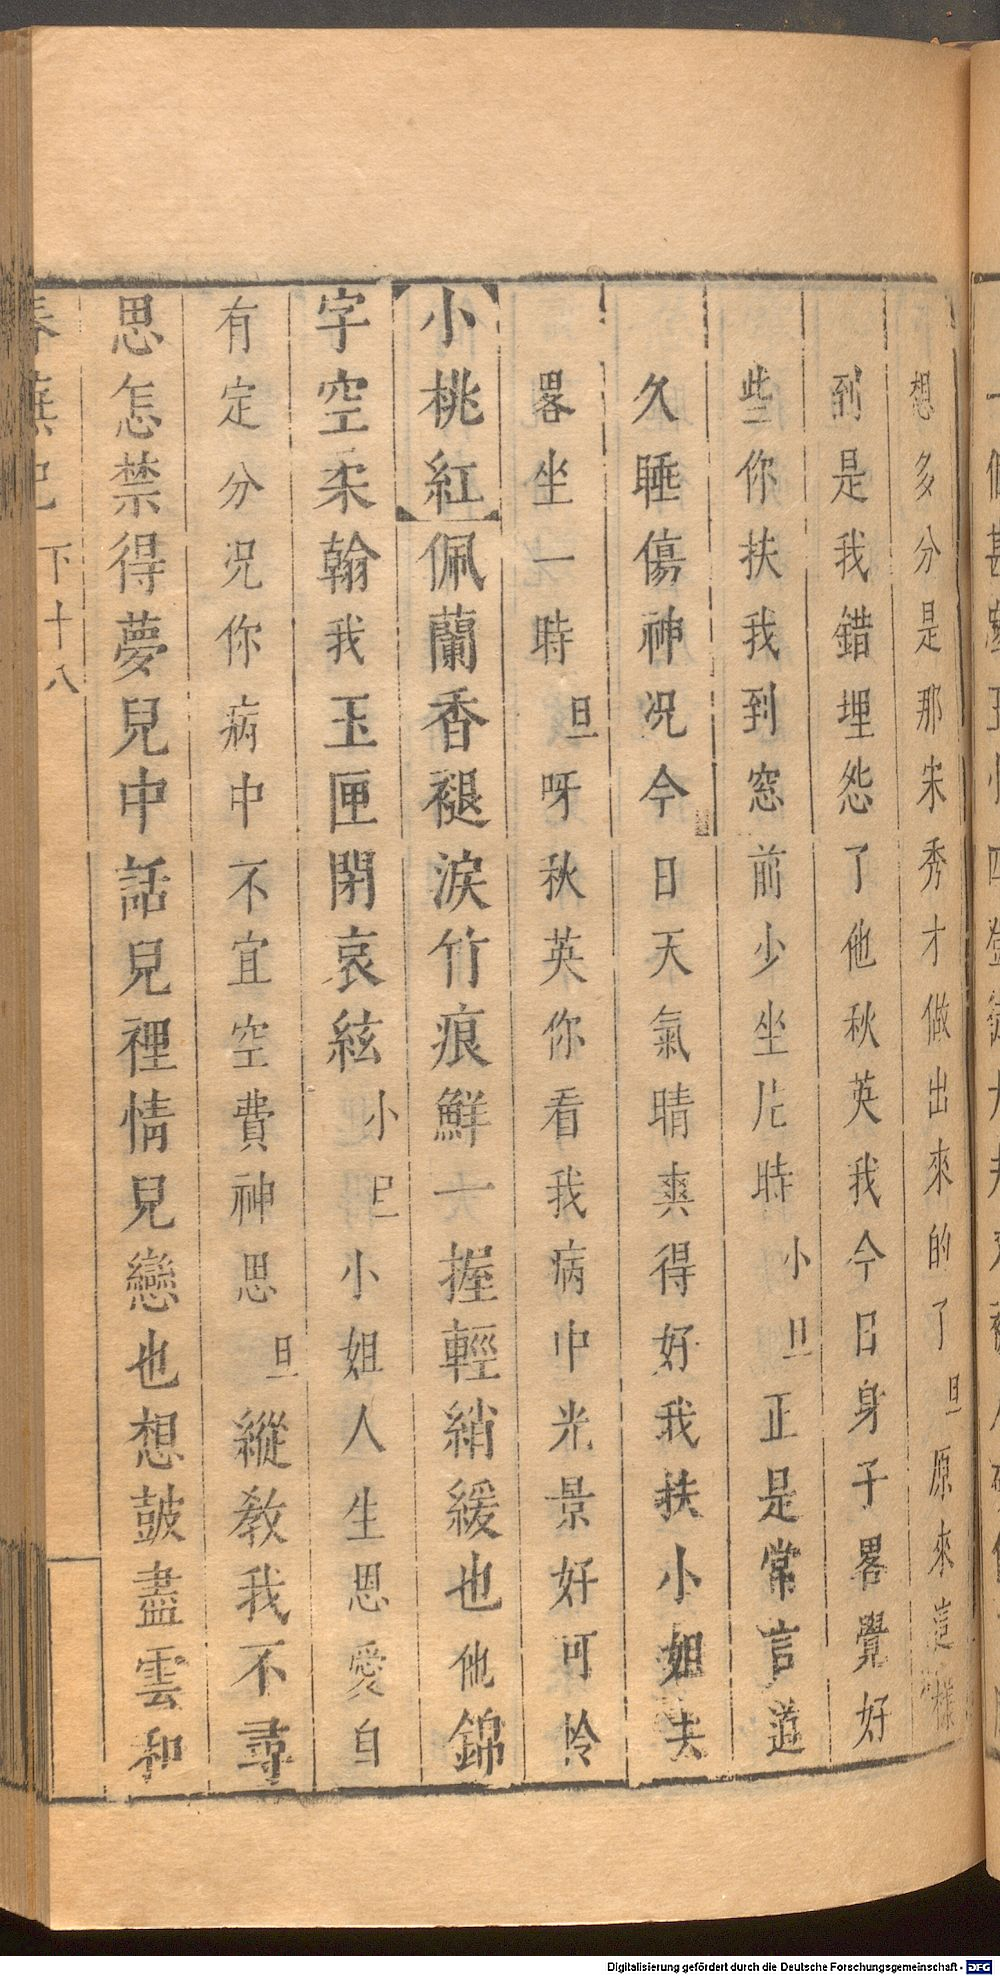 想多分是那宋秀才做出來的了旦原來這樣
到是我錯埋怨了他秋英我今日身子畧覺好
些你扶我到窓前少坐片時小旦正是常言道
久睡傷神况今日天氣晴爽得好我扶小姐去
畧坐一時旦呀秋英你看我病中光景好可怜
小桃紅佩蘭香褪淚竹痕鮮一握輕綃緩也他錦
字空柔翰我玉匣閉哀絃小旦小姐人生恩愛自
有定分况你病中不宜空費神思旦縱教我不尋
思怎禁得夢兒中話兒裡情兒戀也想鼓盡雲和
春蕪記 下十八
Digitalisierung gefördert durch die Deutsche Forschungsgemeinschaft - DFG